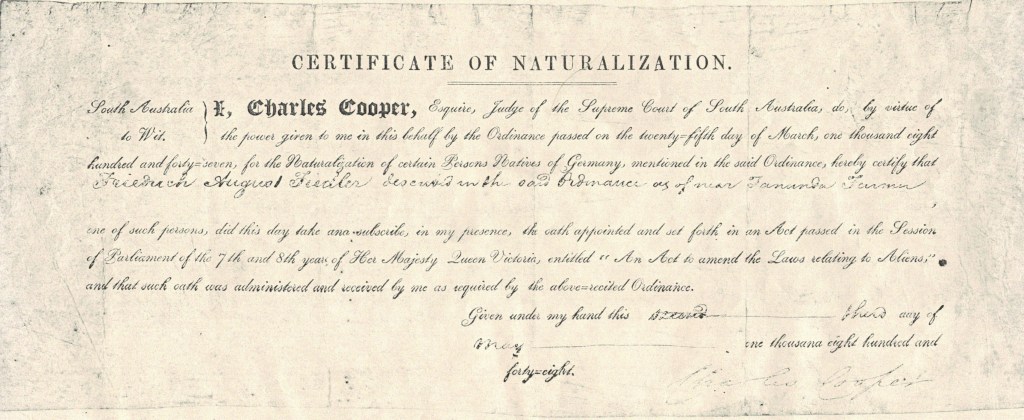 CERTIFICATE OF NATURALIZATION.
South Australia } I, Charles Cooper, Esquire, Judge of the Supreme Court of South Australia, do, by virtue of
to Wit. the power given to me in this behalf by the Ordinance passed on the twenty=fifth day of March, one thousand eight
hundred and forty=seven, for the Naturalization of certain Persons Natives of Germany, mentioned in the said Ordinance, hereby certify that
Friedrich August Fiedler described in the said Ordinance as of near Tanunda Farmer
one of such persons, did this day take and subscribe, in my presence, the oath appointed and set forth in an Act passed in the Session
of Parliament of the 7th and 8th year, of Her Majesty Queen Victoria, entitled "An Act to amend the Laws relating to Aliens;"
and that such oath was administered and received by me as required by the above=recited Ordinance.
Given under my hand this second third day of
May one thousand eight hundred and
forty=eight.
Charles Cooper